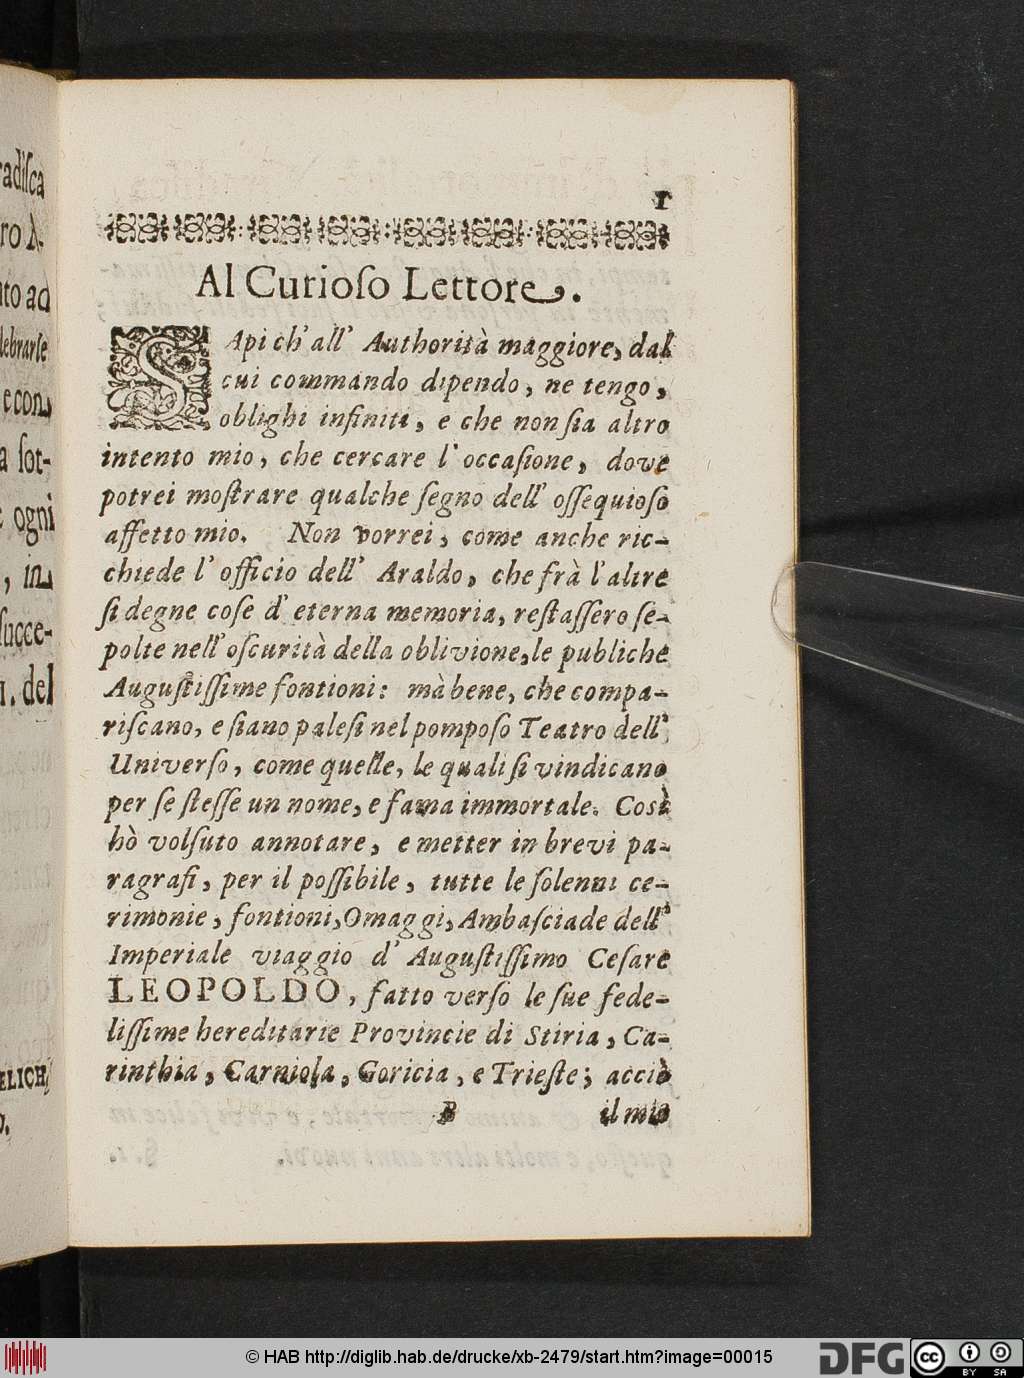 1
Al Curioſo Lettore.
SApi ch' all' Authorità maggiore, dal
cui commando dipendo, ne tengo,
oblighi infiniti, e che non ſia altro
intento mio, che cercare l' occaſione, dove
potrei moſtrare qualche ſegno dell' oſſequioſo
affetto mio. Non vorrei, come anche ric-
chiede l' officio dell' Araldo, che frà l'altre
ſi degne coſe d' eterna memoria, reſtaſſero ſe-
polte nell' oſcurità della oblivione, le publiche
Auguſtiſſime fontioni: mà bene, che compa-
riſcano, e ſiano paleſi nel pompoſo Teatro dell'
Univerſo, come quelle, le quali ſi vindicano
per ſe ſteſſe un nome, e fama immortale. Così
hò volſuto annotare, e metter in brevi pa-
ragrafi, per il poſſibile, tutte le ſolenni ce-
rimonie, fontioni, Omaggi, Ambaſciade dell'
Imperiale viaggio d' Auguſtiſſimo Ceſare
LEOPOLDO, fatto verſo le ſue fede-
liſſime hereditarie Provincie di Stiria, Ca-
rinthia, Carniola, Goricia, e Trieſte; acciò
B
il mio
radiſca
ro A.
ato ad
lebrarſe
e con
a ſot-
ogni
, in
ſucce-
. del
ELICH
© HAB http://diglib.hab.de/drucke/xb-2479/start.htm?image=00015
DFG
cc
BY SA